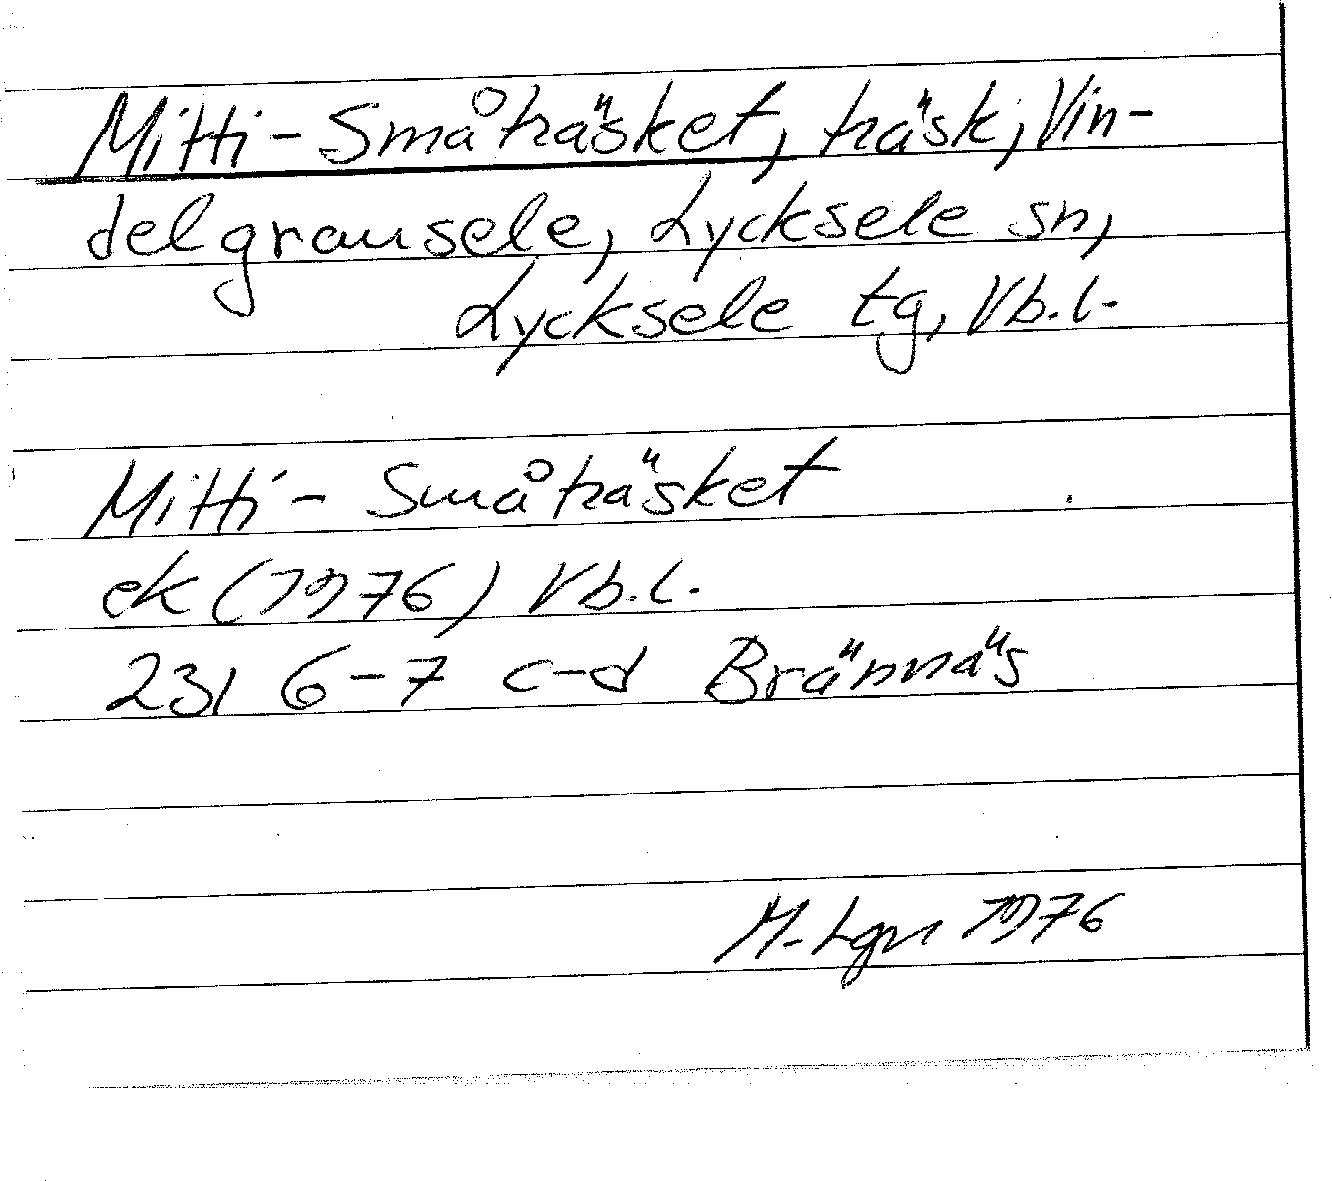 Mitti-Småträsket, träsk, Vin-
delgransele, Lycksele sn,
Lycksele tg, Vb.l.
Mitti-Småträsket
ek (1976) Vb.l.
23I 6-7 c-d Brännäs
M. Lgn 1976